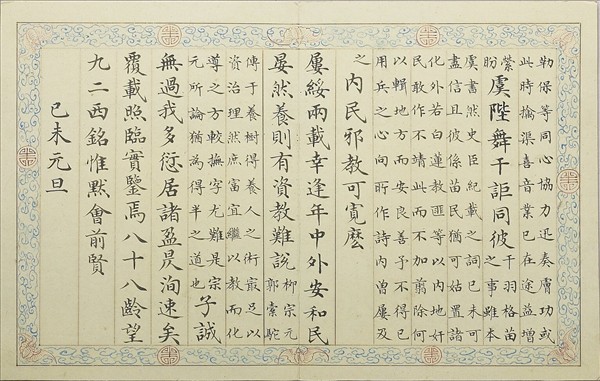 勒保等同心協力迅奏膚功或
此時擒渠喜音業已在途益增
縈盼虞陛舞干詎同彼干羽格苗之事雖本
虞書然史臣紀載之詞已未可
盡信且彼係苗民猶可姑置諸
化外若白蓮教匪等以内地奸
民敢作不靖此而不加翦除何
以輯地方而安良善予不得已
用兵之心向所作詩内曾屢及
之内民邪教可寬麽
屢綏兩載幸逢年中外安和民
晏然養則有資教難說柳宗元郭索駝
傳于養樹得養人之術最足以
資治理然庶富宜繼以教而化
導之方較撫字尤難是宗
元所論猶為得半之道也予誠
無過我多愆居諸盈昃洵速矣
覆載照臨實鑒焉八十八齡望
九二西銘惟默會前賢
己未元旦